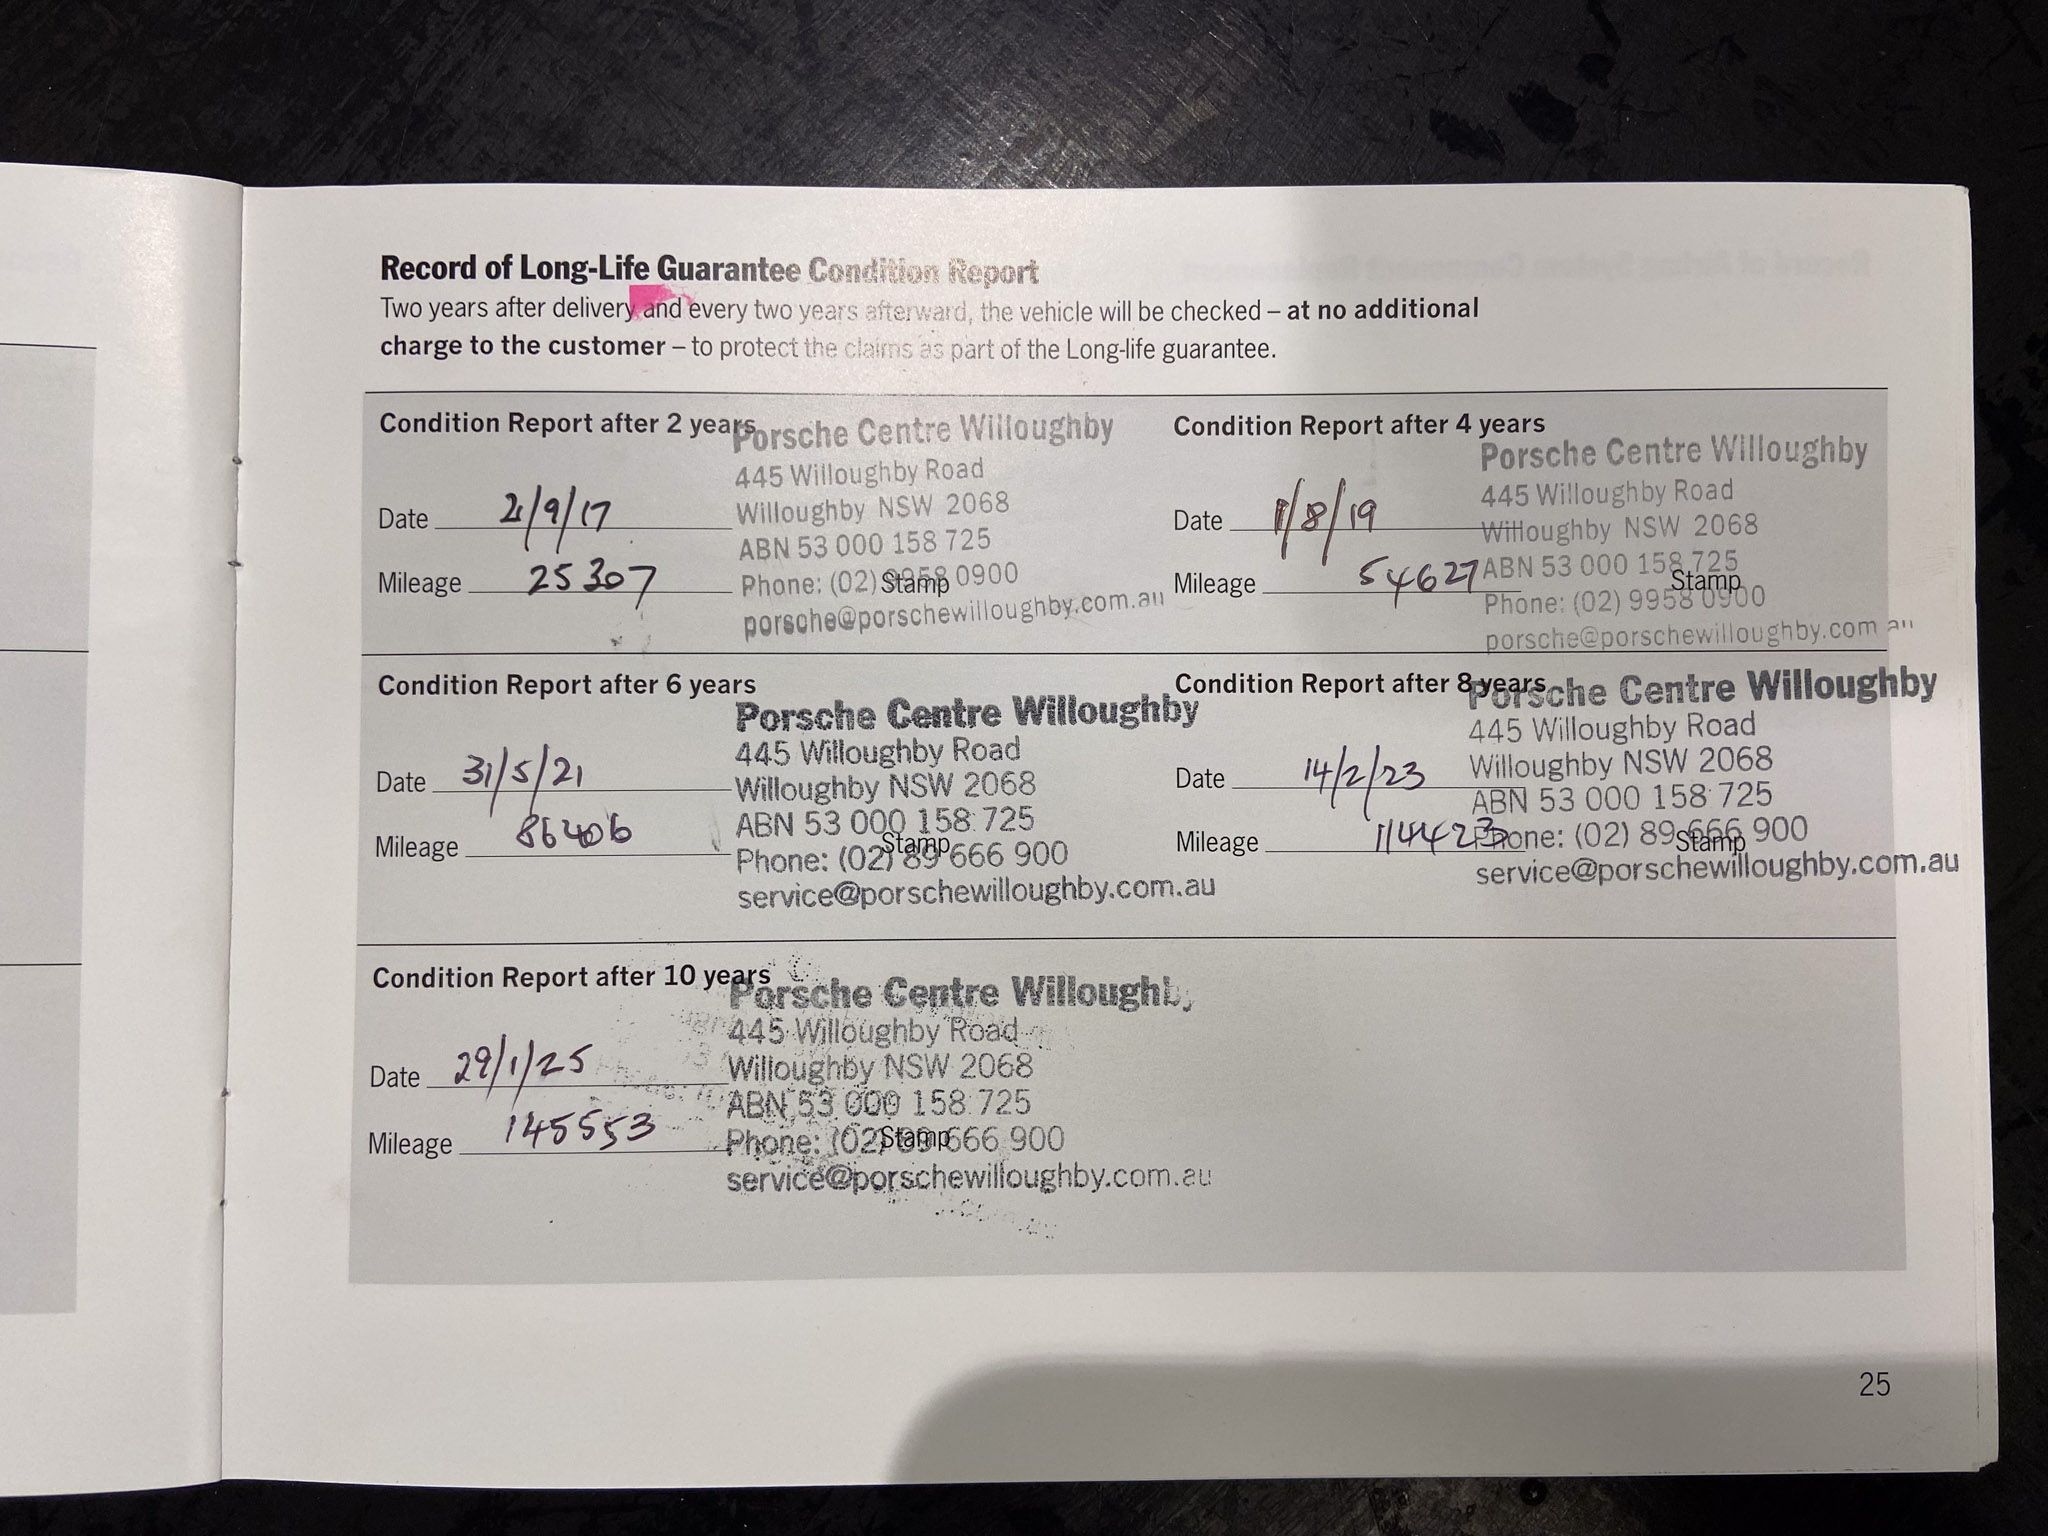 Record of Long-Life Guarantee Condition Report
Two years after delivery and every two years afterward, the vehicle will be checked – at no additional
charge to the customer – to protect the claims as part of the Long-life guarantee.
Condition Report after 2 years
Porsche Centre Willoughby
445 Willoughby Road
Willoughby NSW 2068
ABN 53 000 158 725
Phone: (02) 9958 0900
porsche@porschewilloughby.com.au
Date /9/17
Mileage 25307
Stamp
Condition Report after 4 years
Porsche Centre Willoughby
445 Willoughby Road
Willoughby NSW 2068
ABN 53 000 158 725
Phone: (02) 9958 0900
porsche@porschewilloughby.com.au
Date 1/8/19
Mileage 54627
Stamp
Condition Report after 6 years
Porsche Centre Willoughby
445 Willoughby Road
Willoughby NSW 2068
ABN 53 000 158 725
Phone: (02) 89 666 900
service@porschewilloughby.com.au
Date 31/5/21
Mileage 86406
Stamp
Condition Report after 8 years
Porsche Centre Willoughby
445 Willoughby Road
Willoughby NSW 2068
ABN 53 000 158 725
Phone: (02) 89 666 900
service@porschewilloughby.com.au
Date 14/2/23
Mileage 114423
Stamp
Condition Report after 10 years
Porsche Centre Willoughby
445 Willoughby Road
Willoughby NSW 2068
ABN 53 000 158 725
Phone: (02) 89 666 900
service@porschewilloughby.com.au
Date 29/1/25
Mileage 145553
Stamp
25